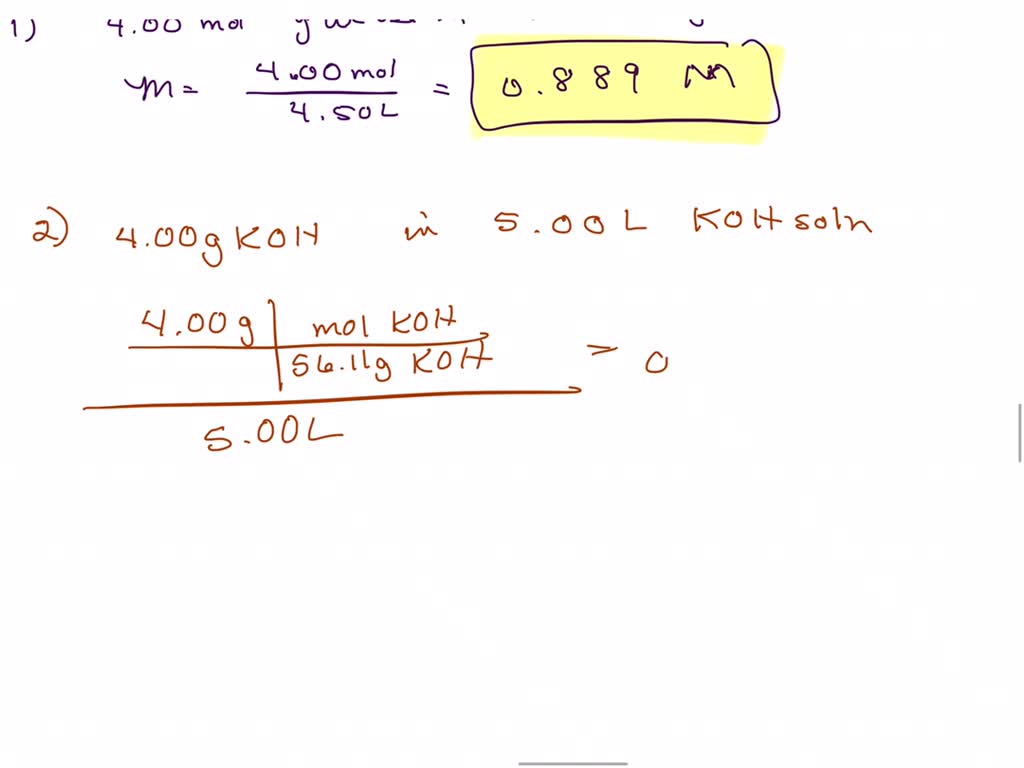 1) 4.00 mol
M = 4.00 mol / 4.50L = 0.889 M
2) 4.00g KOH in 5.00L KOH soln
4.00g | mol KOH
56.11g KOH = 0
5.00L